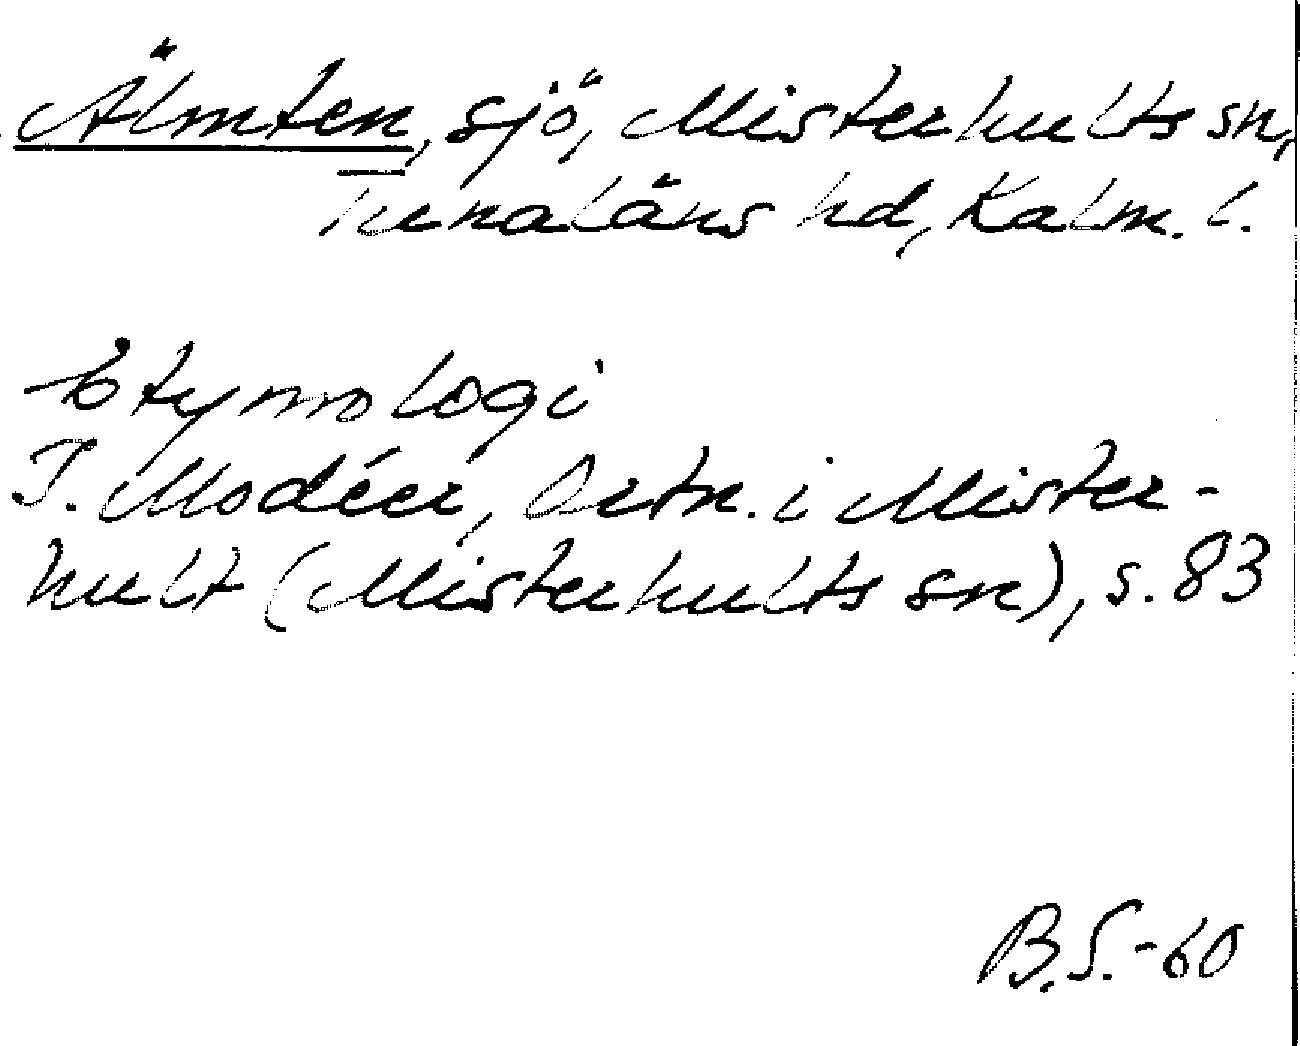 Älmten, sjö, Misterhults sn,
Tunaläns hd, Kalm. l.
Etymologi
I. Modéer, Ortn. i Mister-
hult (Misterhults sn), s. 83
B.S.-60